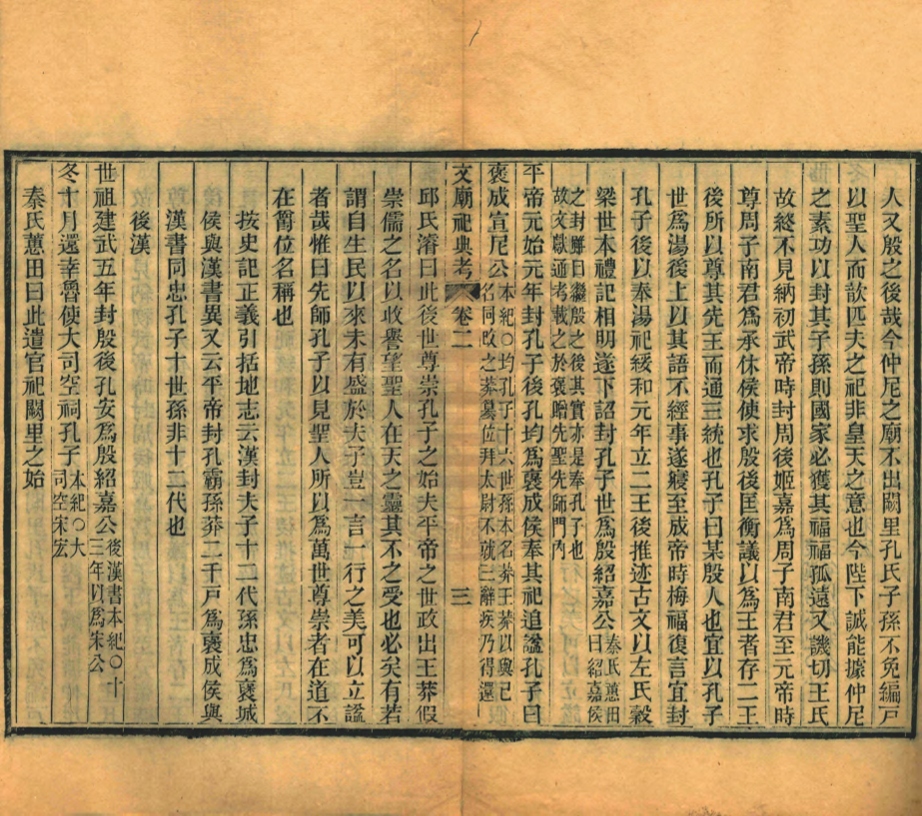 人又殷之後哉今仲尼之廟不出闕里孔氏子孫不免編戶
以聖人而歆匹夫之祀非皇天之意也今陛下誠能據仲尼
之素功以封其子孫則國家必獲其福福孤遠又譏切王氏
故終不見納初武帝時封周後姬嘉爲周子南君至元帝時
尊周子南君爲承休侯使求殷後匡衡議以爲王者存二王
後所以尊其先王而通三統也孔子曰某殷人也宜以孔子
世爲湯後上以其語不經事遂寢至成帝時梅福復言宜封
孔子後以奉湯祀綏和元年立二王後推迹古文以左氏穀
梁世本禮記相明遂下詔封孔子世爲殷紹嘉公
秦氏蕙田
曰紹嘉侯
之封雖曰繼殷之後其實亦是奉孔子也
故文獻通考載之於褒贈先聖先師門內
平帝元始元年封孔子後孔均爲褒成侯奉其祀追諡孔子曰
褒成宣尼公
本紀○均孔子十六世孫本名莽王莽以與己
名同改之莽簒位拜太尉不就三辭疾乃得還
文廟祀典考
卷二
三
邱氏濬曰此後世尊崇孔子之始夫平帝之世政出王莽假
崇儒之名以收譽望聖人在天之靈其不之受也必矣有若
謂自生民以來未有盛於夫子豈一言一行之美可以立諡
者哉惟曰先師孔子以見聖人所以爲萬世尊崇者在道不
在爵位名稱也
按史記正義引括地志云漢封夫子十二代孫忠爲褒城
侯與漢書異又云平帝封孔霸孫莽二千戶爲褒成侯與
漢書同忠孔子十世孫非十二代也
後漢
世祖建武五年封殷後孔安爲殷紹嘉公
後漢書本紀○十
三年以爲宋公
冬十月還幸魯使大司空祠孔子
本紀○大
司空宋宏
秦氏蕙田曰此遣官祀闕里之始